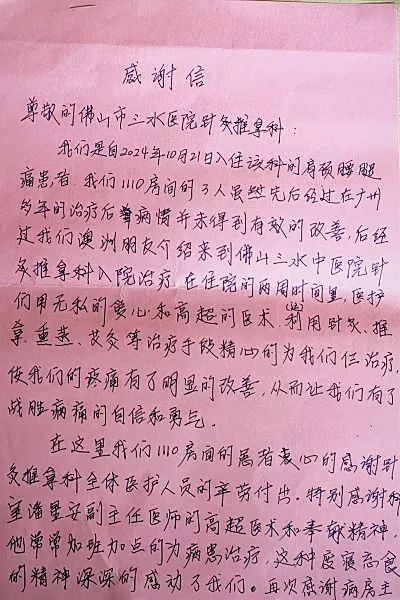 感谢信
尊敬的佛山市三水医院针灸推拿科:
我们是自2024年10月21日入住该科的肩颈腰腿
痛患者. 我们1110房间的3人虽然先后经过在广州
多年的治疗后 病情并未得到有效的改善,后经
过我们澳洲朋友介绍来到佛山三水中医院针
灸推拿科入院治疗,在住院的两周时间里,医护
们用无私的爱心和高超的医术,利用针灸、推
拿、熏蒸、艾灸等治疗手段精心的为我们仨治疗,
使我们的疼痛有了明显的改善,从而让我们有了
战胜病痛的自信和勇气.
在这里我们1110房间的患者衷心的感谢针
灸推拿科全体医护人员的辛劳付出. 特别感谢科
室潘 副主任医师的高超医术和奉献精神,
他常常加班加点的为病患治疗,这种废寝忘食
的精神深深的感动了我们。再次感谢病房主